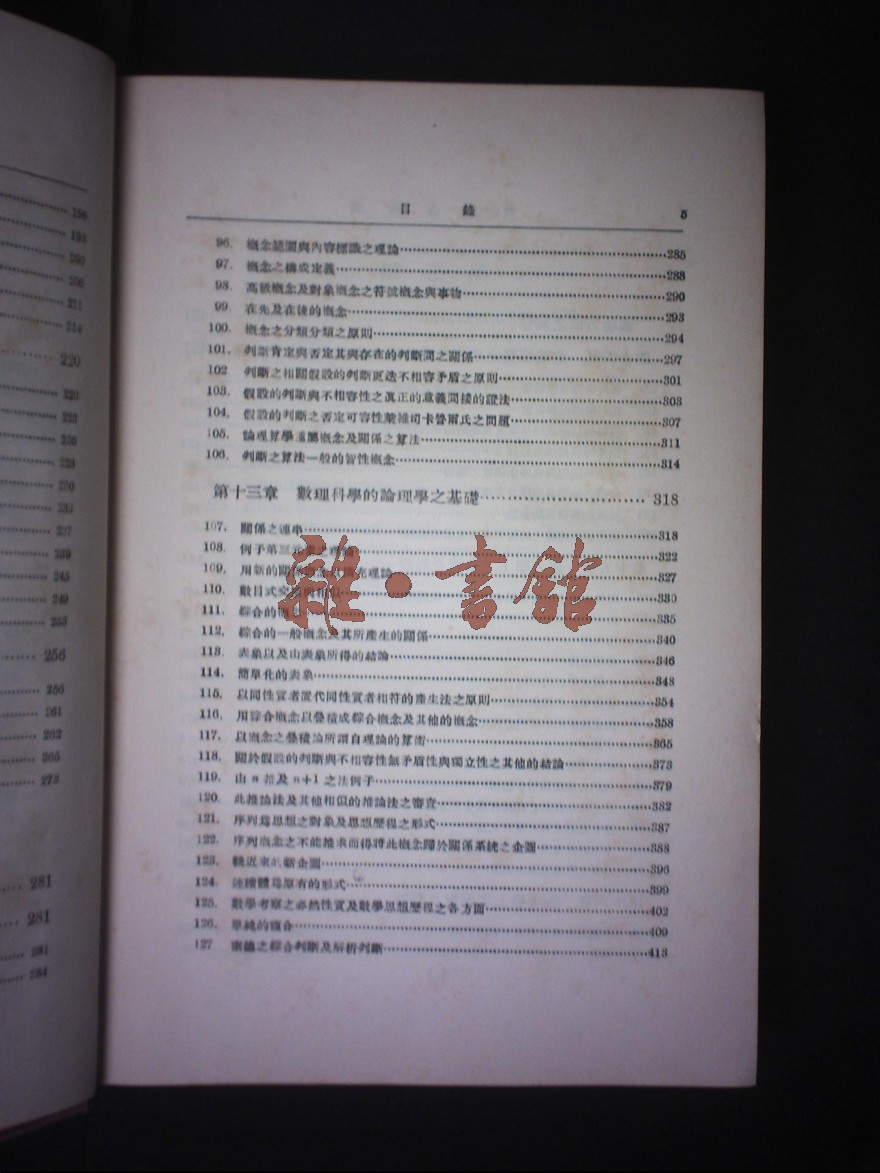 196
194
200
206
211
214
220
220
223
226
228
230
233
237
239
245
249
253
256
256
261
262
265
273
281
281
281
284
目 錄 5
96. 概念範圍與內容標識之理論 285
97. 概念之構成定義 288
98. 高級概念及對象概念之符號概念與事物 290
99. 在先及在後的概念 293
100. 概念之分類分類之原則 294
101. 判斷肯定與否定其與存在的判斷間之關係 297
102 判斷之相關假設的判斷更迭不相容矛盾之原則 301
103. 假設的判斷與不相容性之眞正的意義間接的證法 303
104. 假設的判斷之否定可容性 維司卡魯爾氏之問題 307
105. 論理算學 屬概念及關係之算法 311
106. 判斷之算法一般的智性概念 314
第十三章 數理科學的論理學之基礎 318
107. 關係之連串 318
108. 例子第三 之理論 322
109. 用新的關 充理論 327
110. 數目式 與相似 330
111. 綜合的 335
112. 綜合的一般概念及其所產生的關係 340
113. 表象以及由表象所得的結論 346
114. 簡單化的表象 348
115. 以同性質者置代同性質者相符的產生法之原則 354
116. 用綜合概念以疊積成綜合概念及其他的概念 358
117. 以概念之疊積論所謂自理論的算術 365
118. 關於假設的判斷與不相容性無矛盾性與獨立性之其他的結論 373
119. 由 n 推及 n+1 之法例子 379
120. 此推論法及其他相似的推論法之審查 382
121. 序列爲思想之對象及思想歷程之形式 387
122. 序列概念之不能推求而得將此概念歸於關係系統之企圖 388
123. 輓近來的新企圖 396
124. 連續體爲原有的形式 399
125. 數學考察之必然性質及數學思想歷程之各方面 402
126. 單純的複合 409
127 康德之綜合判斷及解析判斷 413
雜·書館